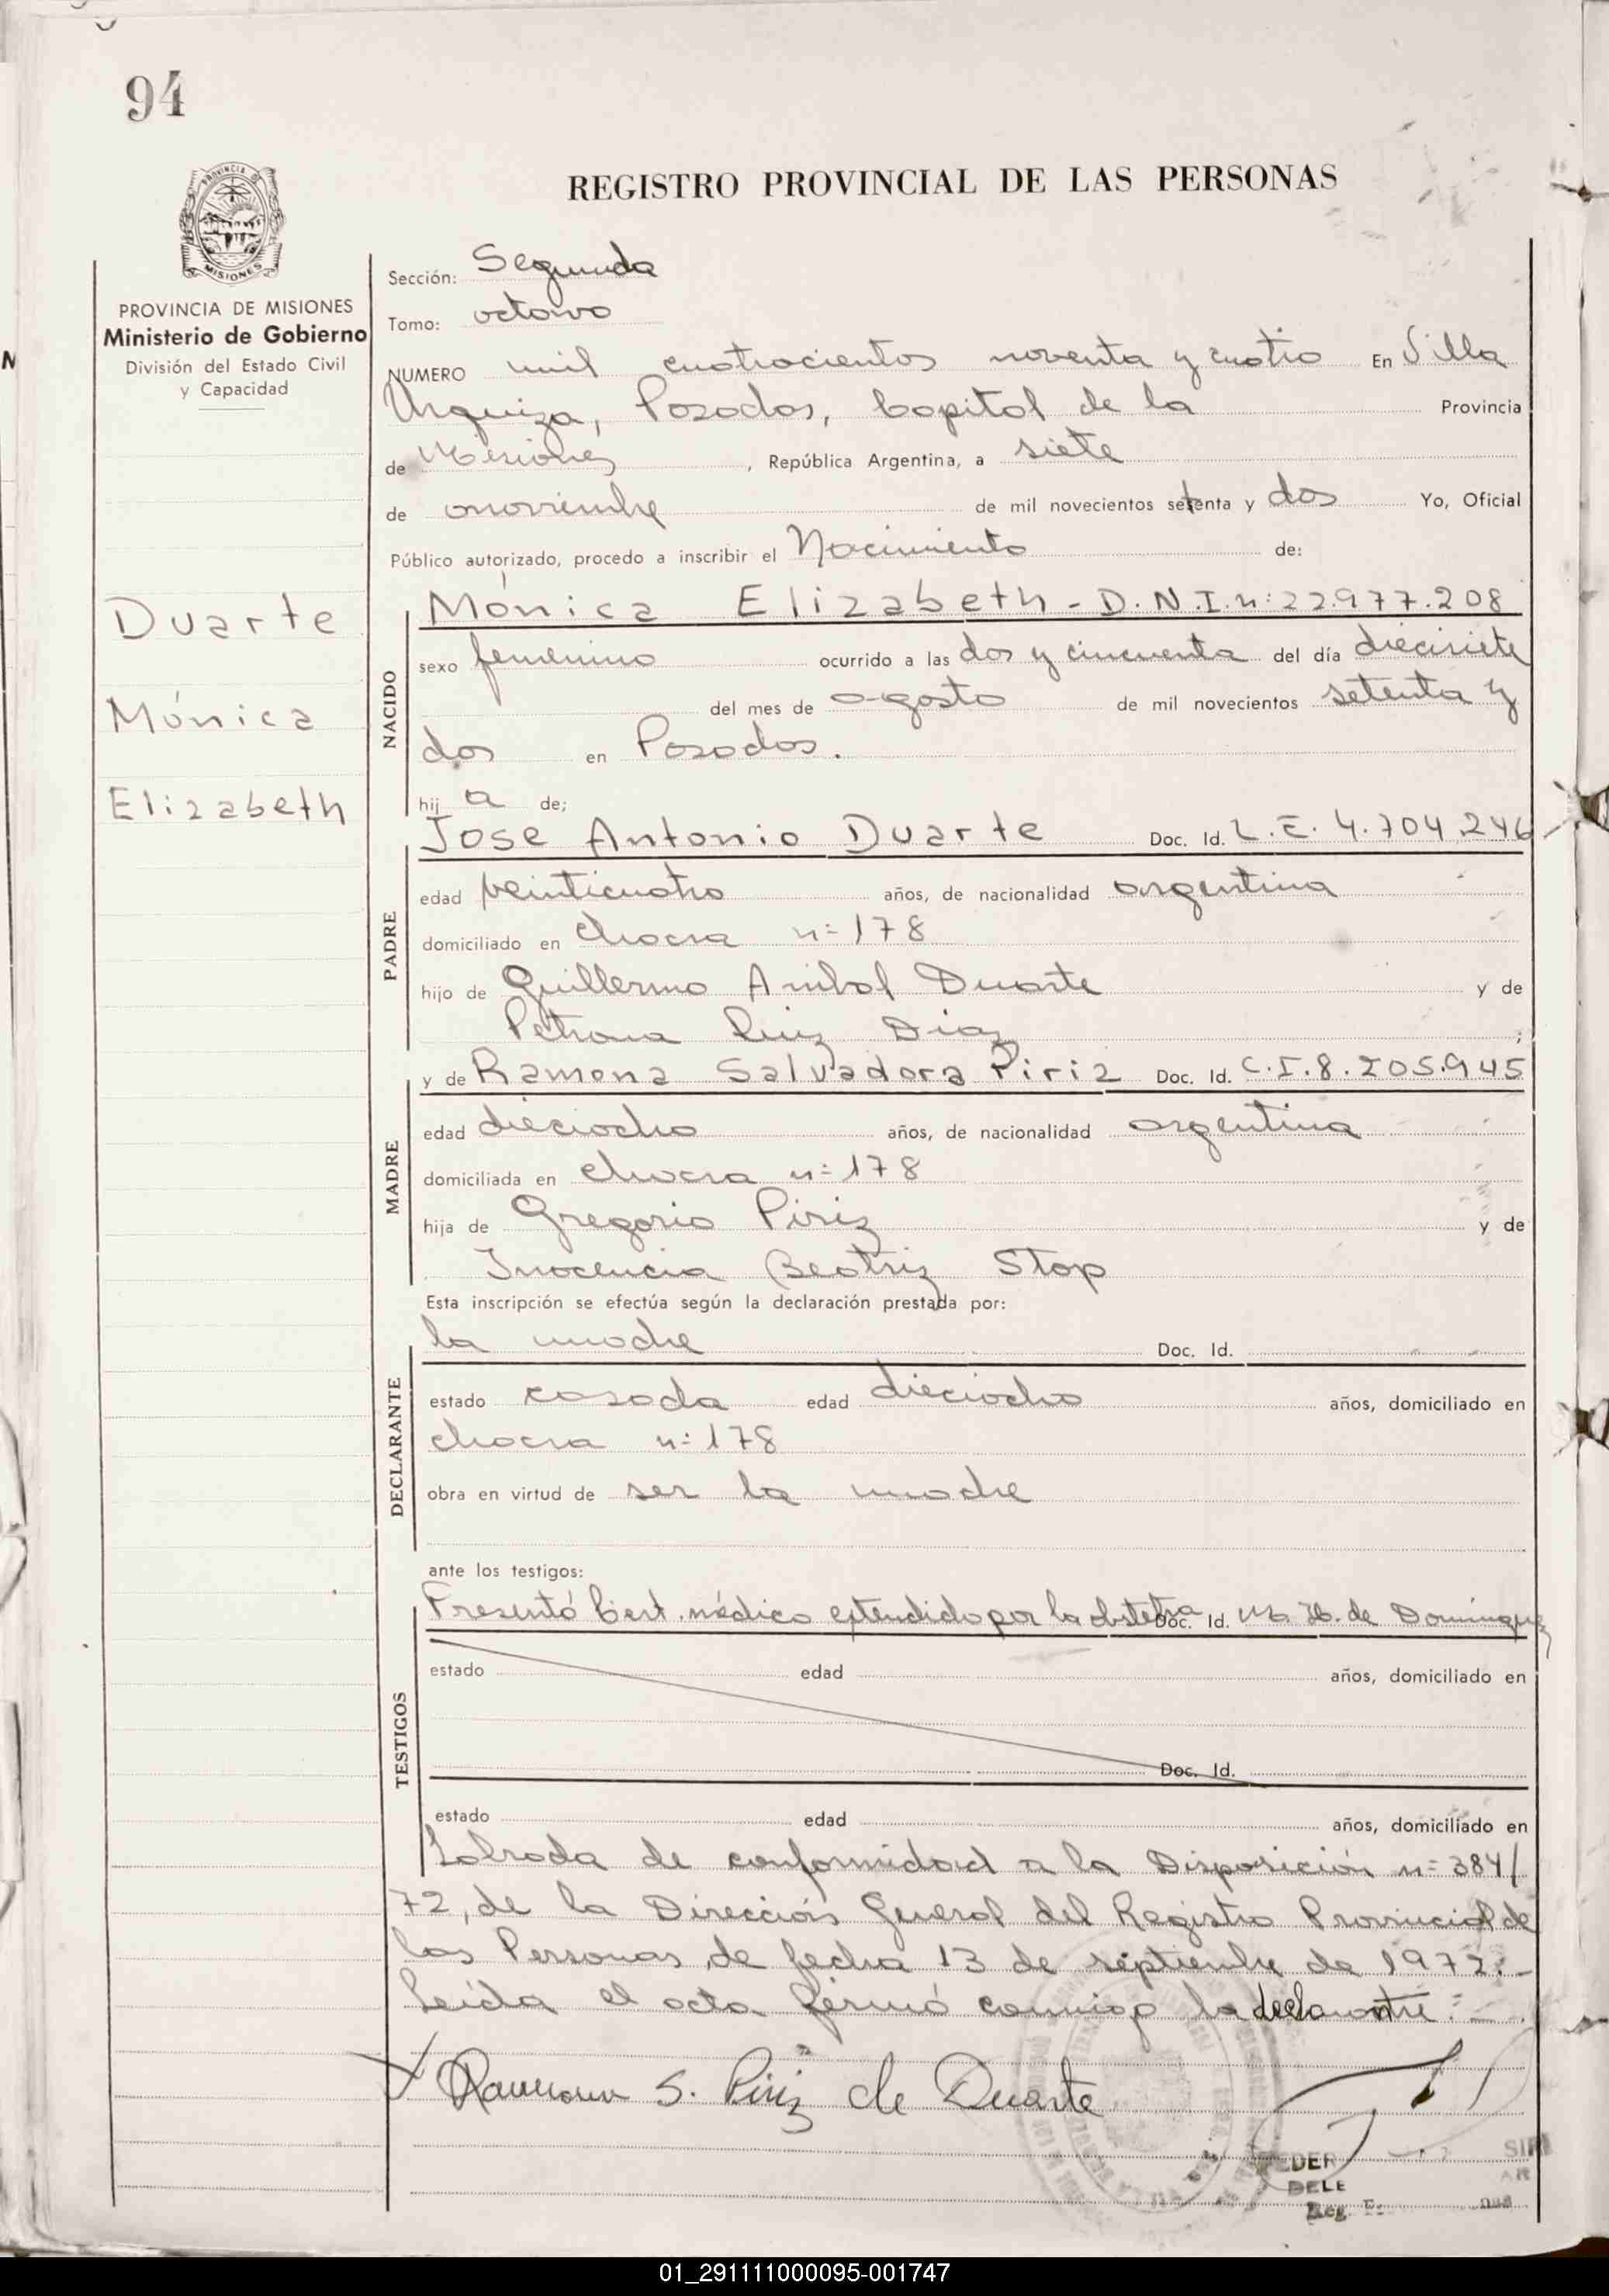 94
REGISTRO PROVINCIAL DE LAS PERSONAS
PROVINCIA DE MISIONES
Ministerio de Gobierno
División del Estado Civil
y Capacidad
Duarte
Mónica
Elizabeth
Sección: Segunda
Tomo: octavo
NUMERO mil cuatrocientos noventa y cuatro En Villa
Urquiza, Posadas, Capital de la Provincia
de Misiones, República Argentina, a siete
de noviembre de mil novecientos setenta y dos Yo, Oficial
Público autorizado, procedo a inscribir el Nacimiento de:
NACIDO
Mónica Elizabeth - D.N.I. n: 22.977.208
sexo femenino ocurrido a las dos y cincuenta del día diecisiete
del mes de agosto de mil novecientos setenta y
dos en Posadas.
hij a de;
PADRE
Jose Antonio Duarte Doc. Id. L.E. 4.704.246
edad veinticuatro años, de nacionalidad argentina
domiciliado en chacra n: 178
hijo de Guillermo Anibal Duarte y de
Petrona Ruiz Diaz;
MADRE
y de Ramona Salvadora Piriz Doc. Id. C.I. 8.205.945
edad dieciocho años, de nacionalidad argentina
domiciliada en chacra n: 178
hija de Gregorio Piriz y de
Inocencia Beatriz Stop
Esta inscripción se efectúa según la declaración prestada por:
DECLARANTE
la madre Doc. Id.
estado casada edad dieciocho años, domiciliado en
chacra n: 178
obra en virtud de ser la madre
ante los testigos:
TESTIGOS
Presentó Cert. médico extendido por la obstetra Doc. Id. M. H. de Domínguez
estado edad años, domiciliado en
Doc. Id.
estado edad años, domiciliado en
Labrada de conformidad a la Disposición n: 384/
72, de la Dirección General del Registro Provincial de
las Personas, de fecha 13 de septiembre de 1972.-
Leída el acta firmó conmigo la declarante:-
Ramona S. Piriz de Duarte
DELE
Reg.
01_291111000095-001747